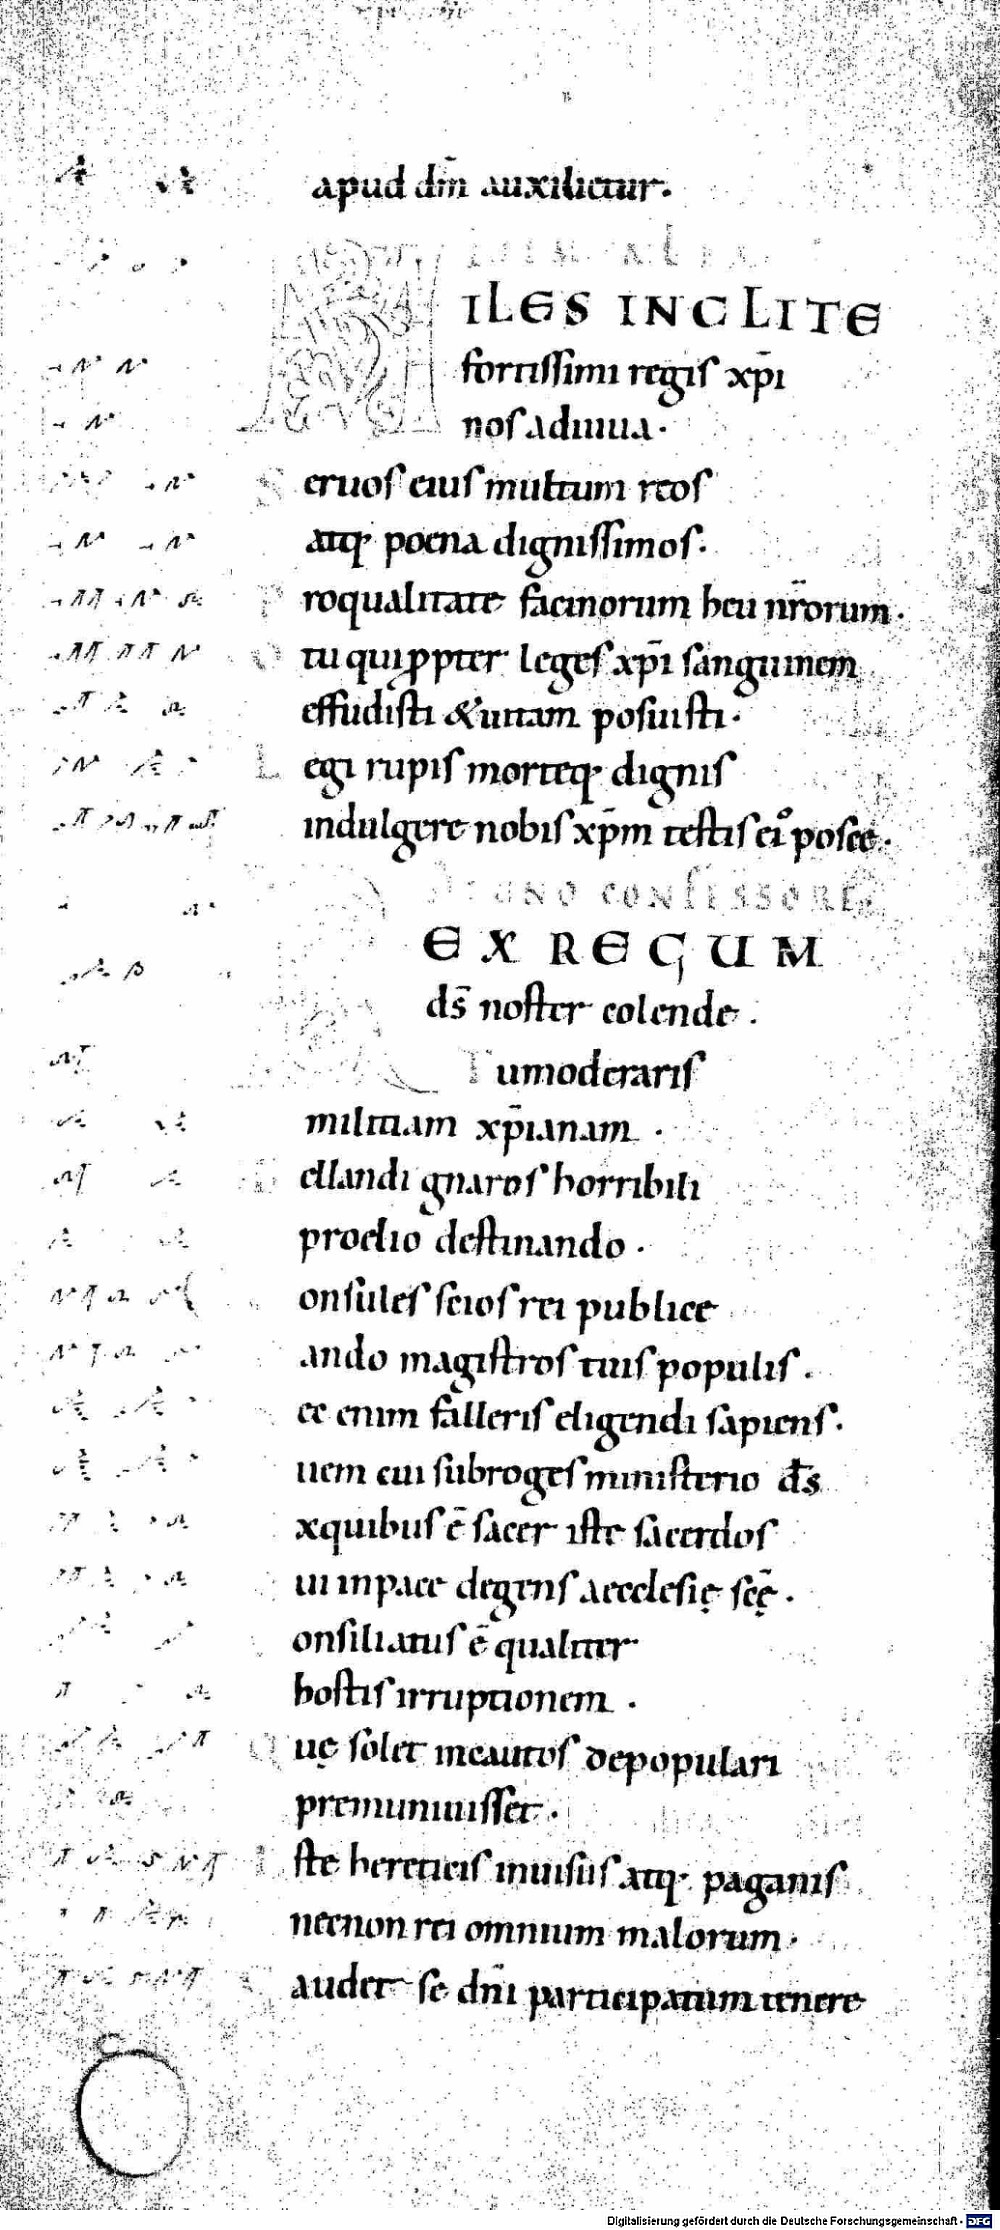 apud dm̄ auxilietur.
ILES INCLITE
fortissimi regis xp̄i
nos adiuua.
S eruos eius multum reos
atq; poena dignissimos.
P roqualitate facinorum heu nr̄orum.
tu qui ꝓpter leges xp̄i sanguinem
effudisti & uitam posuisti.
L egi rupis morteq; dignis
indulgere nobis xp̄m testis ei᷒ posce.
CONFESSORE
EX REGUM
ds̄ noster colende.
T umoderaris
militiam xp̄ianam.
ellandi gnaros horribili
proelio destinando.
onsules scios rei publice
ando magistros tuis populis.
ec enim falleris eligendi sapiens.
uem cui subroges ministerio ds̄
xquibus ē sacer iste sacerdos
ui inpace degens aecclesię scę̄.
onsiliatus ē qualiter
hostis irruptionem.
Q uę solet incautos depopulari
premuniuisset.
I ste hereticis inuisus atq; paganis
necnon rei omnium malorum.
audet se dn̄i participatum tenere
Digitalisierung gefördert durch die Deutsche Forschungsgemeinschaft - DFG